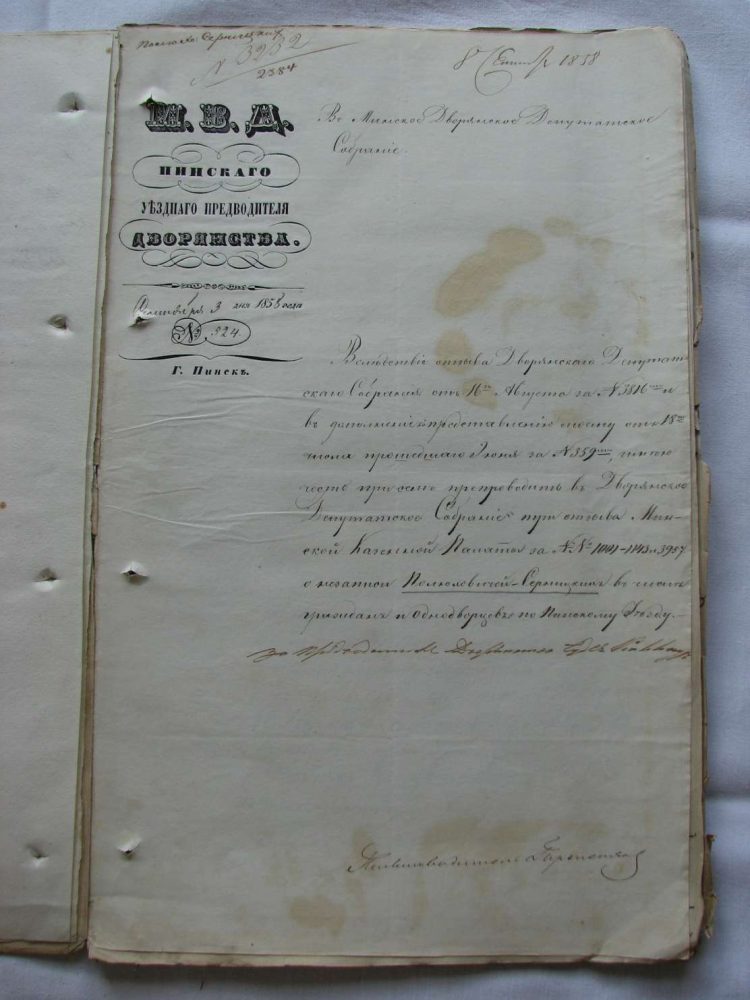 Полюхо Серницких
N 3232
2384
8 Сентябр 1858
М. В. Д.
ПИНСКАГО
УѢЗДНАГО ПРЕДВОДИТЕЛЯ
ДВОРЯНСТВА.
Сентября 3 дня 1858 года
№ 524.
Г. Пинскъ.
Въ Минское Дворянское Депутатское
Собраніе.
Вслѣдствіе отзыва Дворянского Депутат-
скаго Собранія отъ 16го Августа за N 3816 и
въ дополненіе къ представленію моему отъ 18
числа прошедшаго Іюня за N 359 имѣю
честь при семъ препроводить въ Дворянское
Депутатское Собраніе отзыва Мин-
ской Казенной Палаты за N.N 1001-1143 и 3957
о незаписи Полюховичей-Серницкихъ въ число
гражданъ и Однодворцовъ по Пинскому Уѣзду.
За Предводителя Дворянства
Письмоводитель